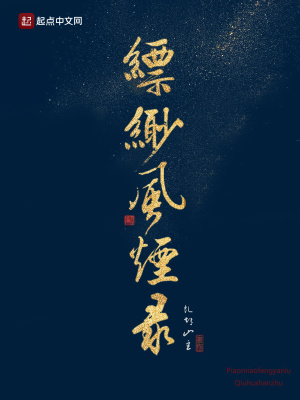 起
起点中文网
縹緲風煙录
山主
Piaomiaofengyanlu